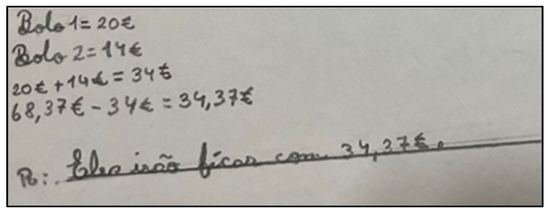 Bolo 1 = 20€
Bolo 2 = 14€
20€ + 14€ = 34€
68,37€ - 34€ = 34,37€
R: Eles irão ficar com 34,37€.